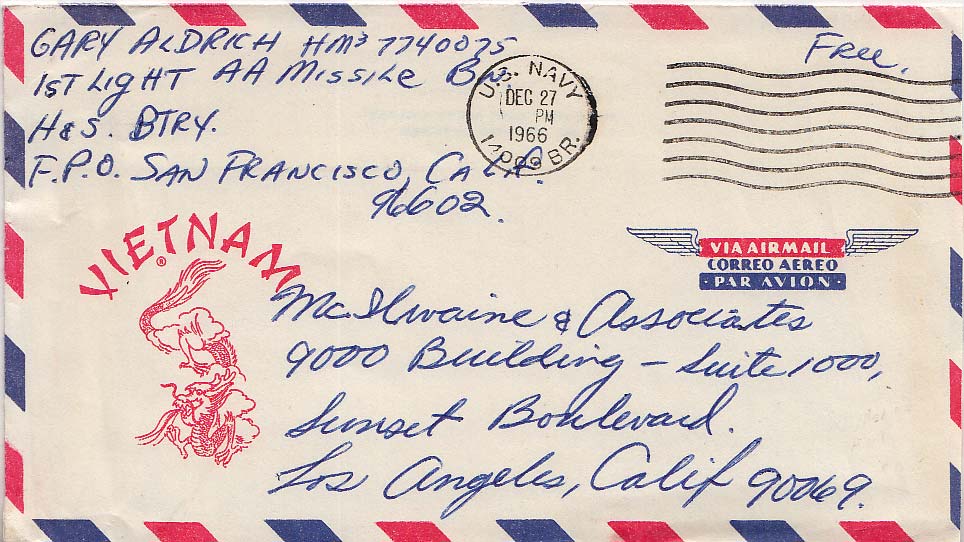 GARY ALDRICH HM3 7740075
1ST LIGHT AA MISSILE BN.
H & S. BTRY.
F.P.O. SAN FRANCISCO, CALIF.
96602.
Free.
U.S. NAVY
DEC 27
PM
1966
BR.
VIETNAM
®
VIA AIRMAIL
CORREO AEREO
· PAR AVION ·
McIlwaine & Associates
9000 Building - Suite 1000,
Sunset Boulevard.
Los Angeles, Calif 90069.